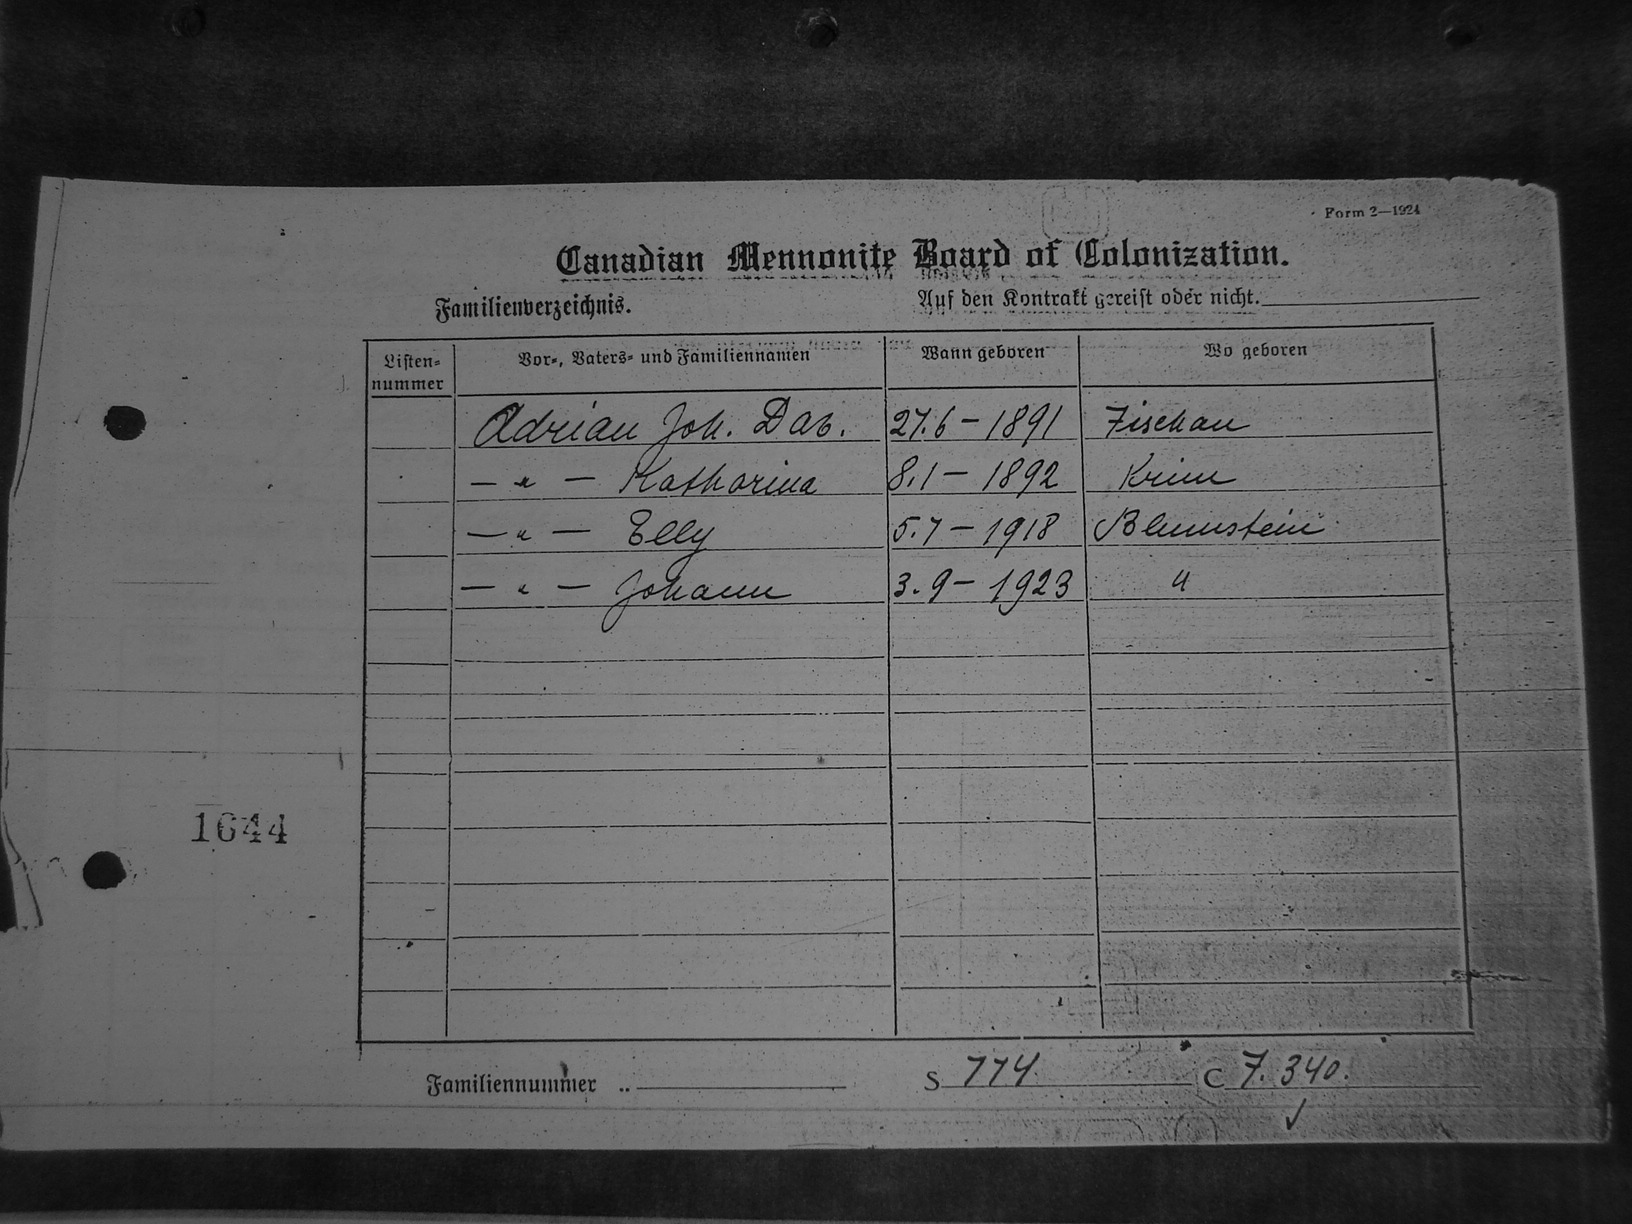 Form 2—1924
Canadian Mennonite Board of Colonization.
Familienverzeichnis. Auf den Kontrakt gereist oder nicht.
Listen-nummer Vor-, Vaters- und Familiennamen Wann geboren Wo geboren
Adrian Joh. Dav. 27.6 – 1891 Tischau
– " – Katharina 8.1 – 1892 Krim
– " – Elly 5.7 – 1918 Blumstein
– " – Johann 3.9 – 1923 "
1644
Familiennummer .. S 774. C 7.340.